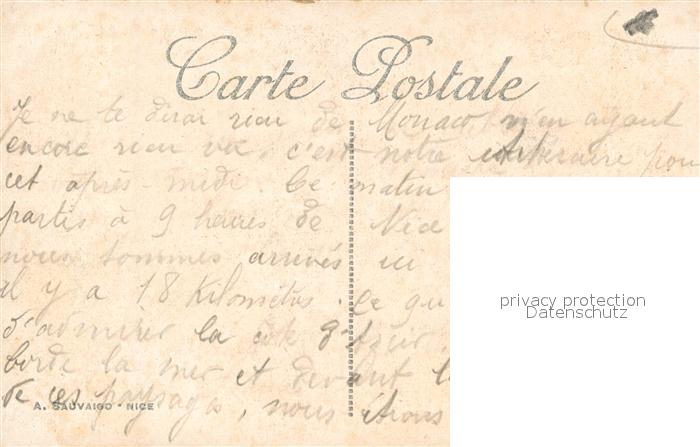 Carte Postale
Je ne te dirai rien de Monaco, n'en ayant
encore rien vu, c'est notre itinéraire pour
cet après-midi. Ce matin
partis à 9 heures de Nice
nous sommes arrivés ici
il y a 18 kilomètres. Ce qu
d'admirer la côte d'azur
borde la mer et devant l
de ces paysages, nous étions
A. SAUVAIGO - NICE
privacy protection
Datenschutz